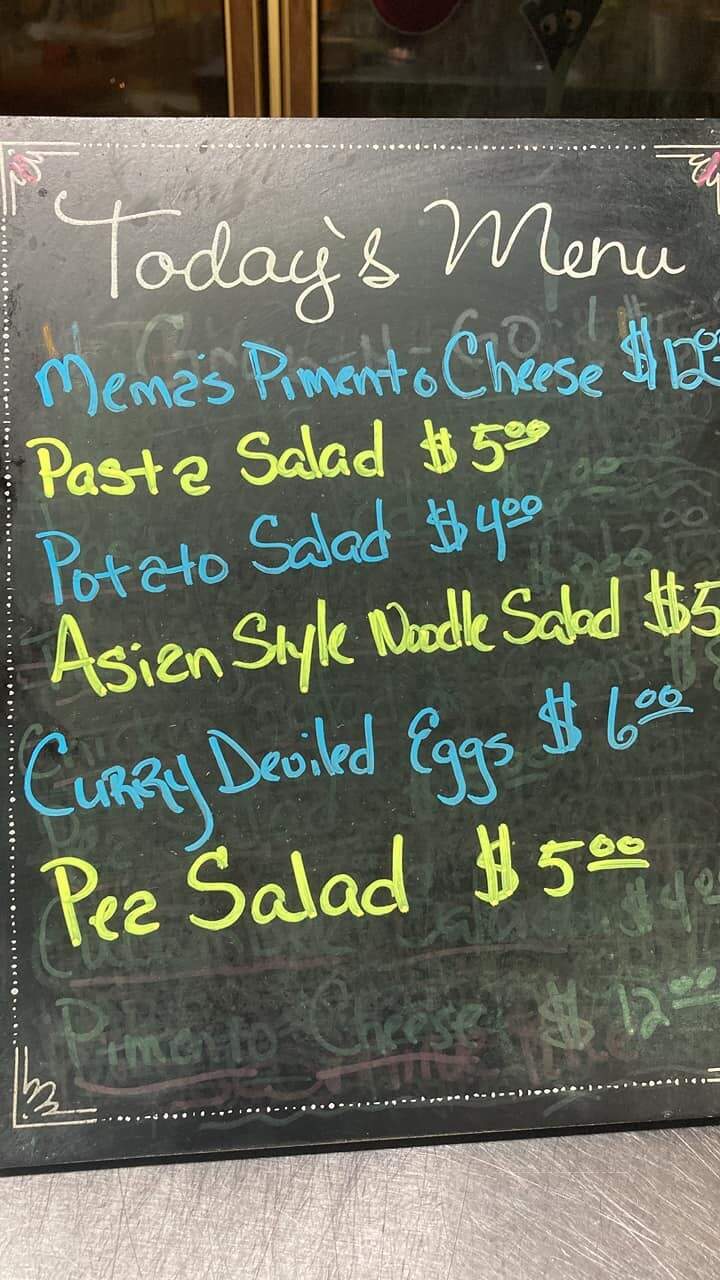 Today's Menu
Mema's Pimento Cheese $12.00
Pasta Salad $5.00
Potato Salad $4.00
Asian Style Noodle Salad $5
Curry Deviled Eggs $6.00
Pea Salad $5.00
Pimento Cheese $12.00